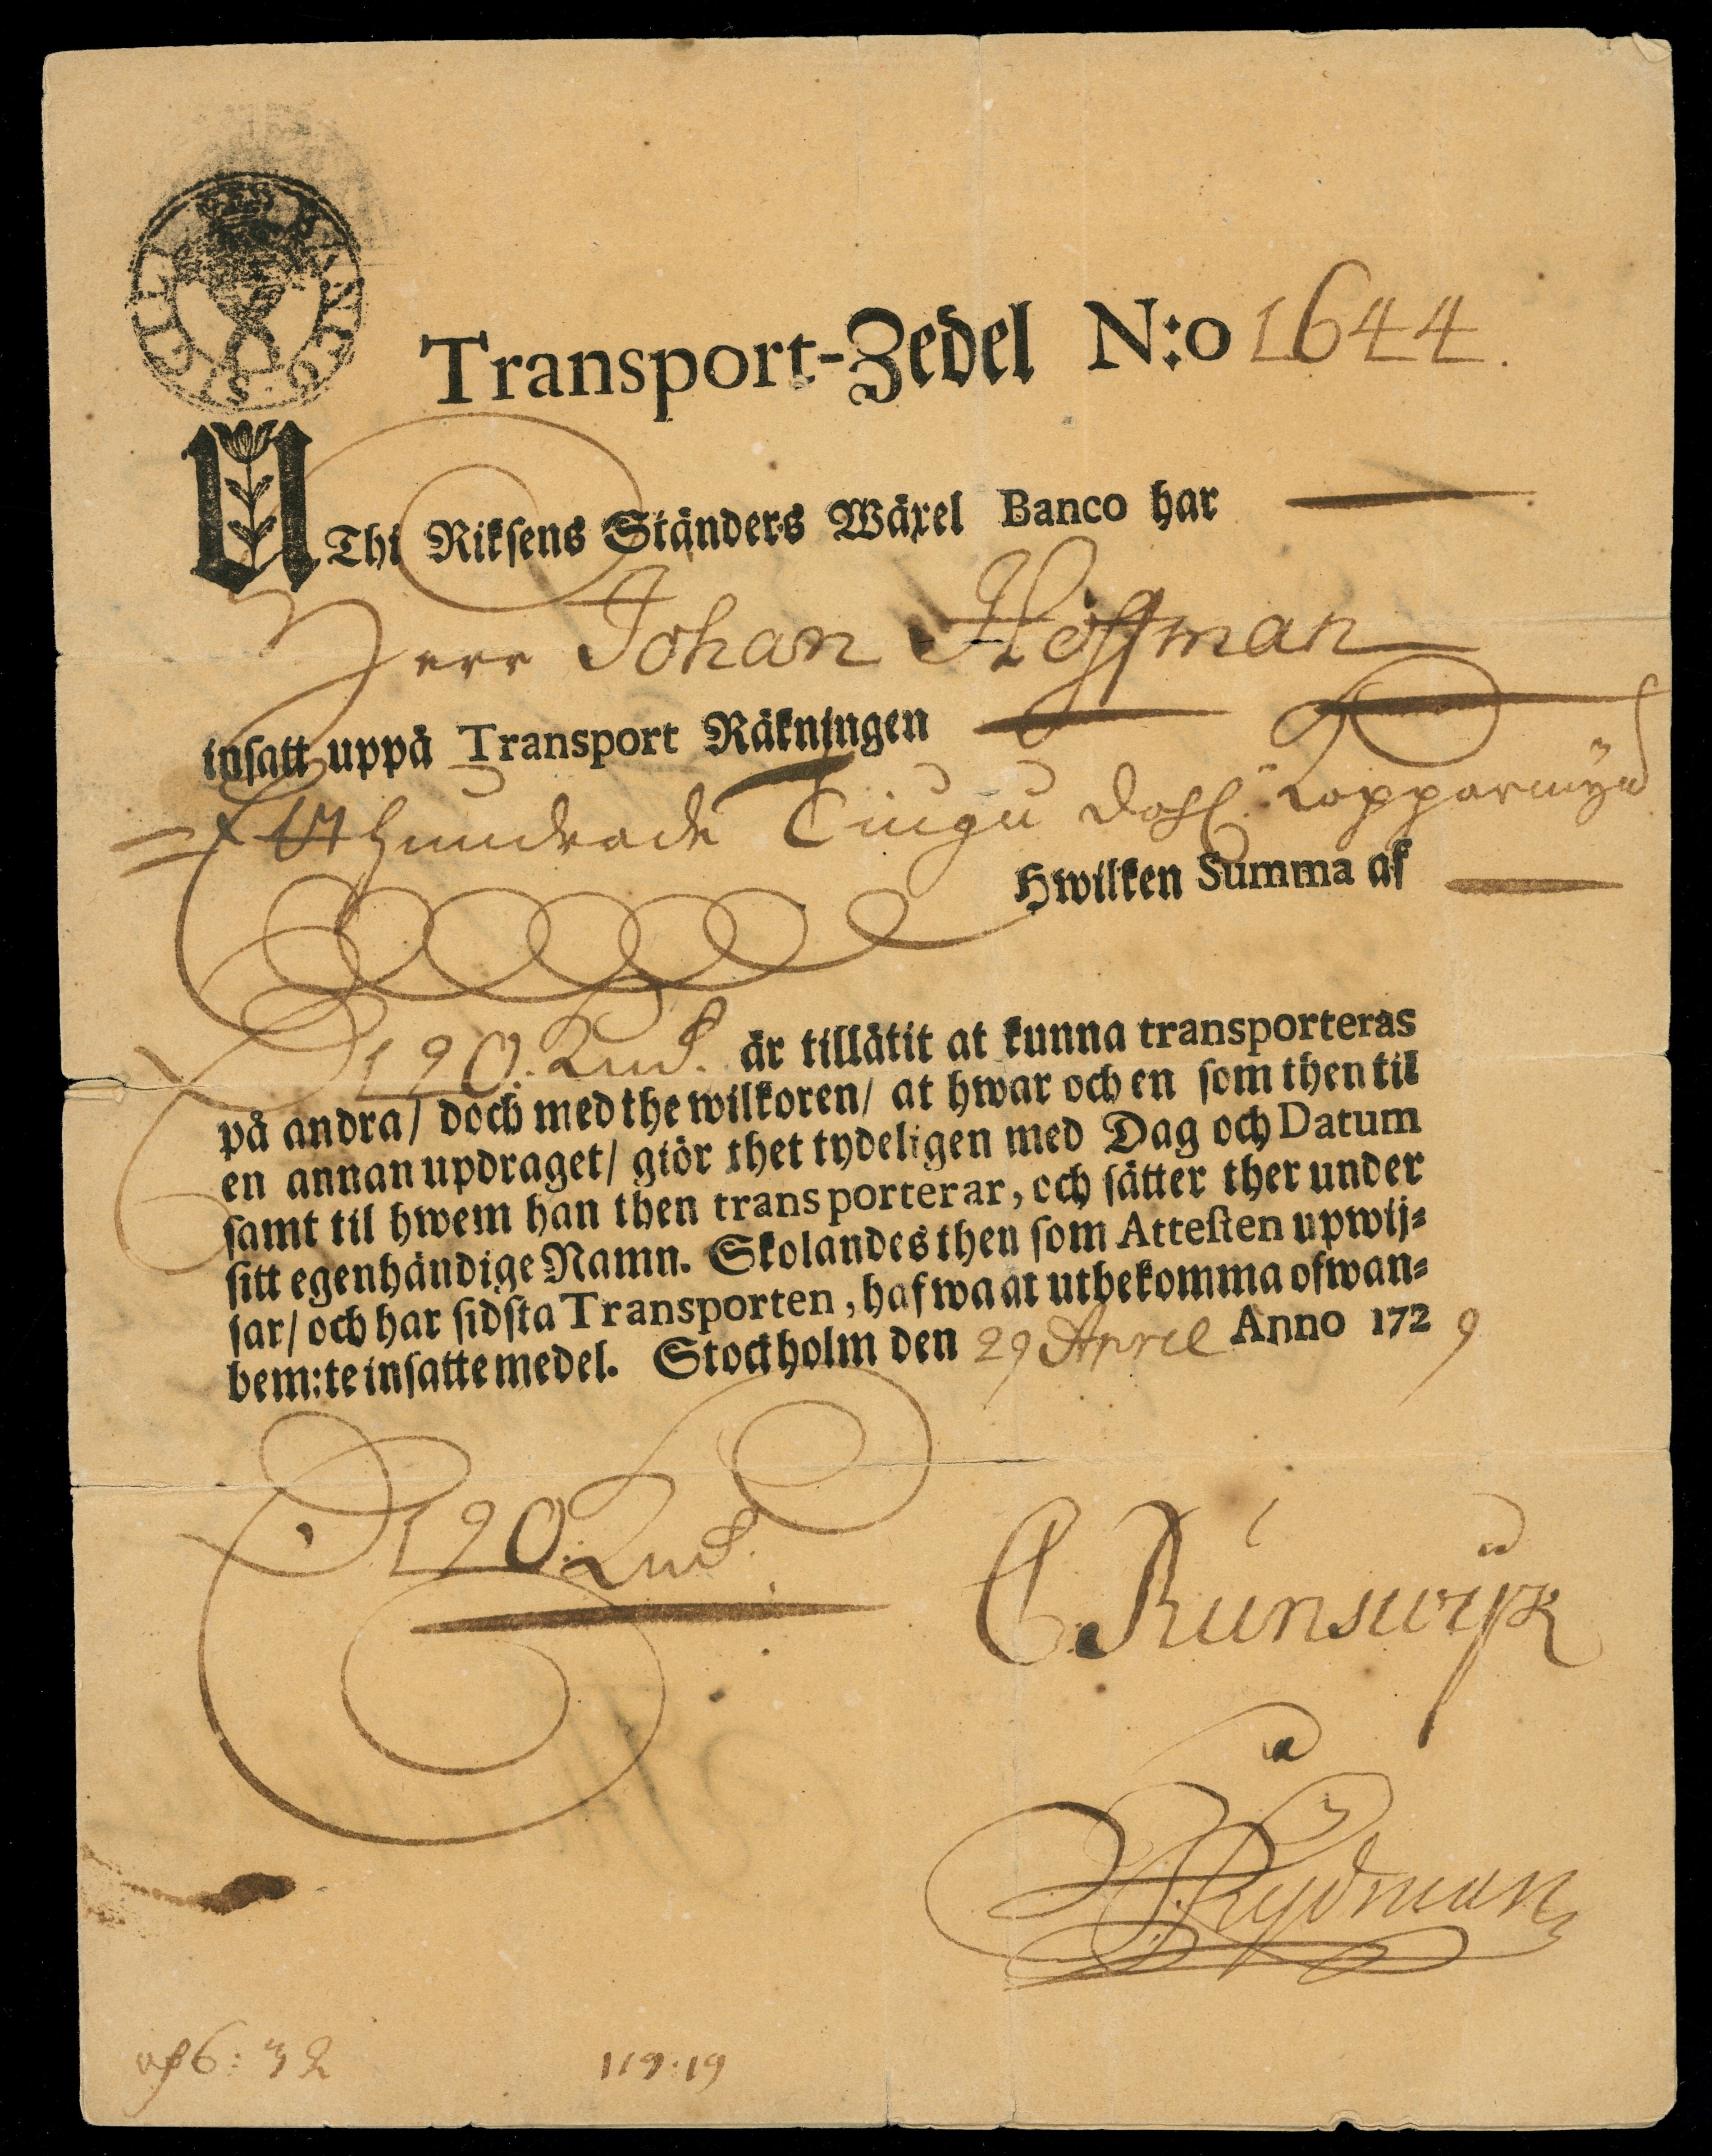 BANCO SIGILL
Transport-Zedel N:o 1644.
UThi Riksens Ständers Wäxel Banco har
Herr Johan Hoffman
insatt uppå Transport Räkningen
Etthundrade Tiugu dahl. Kopparmynt
Hwilken Summa af
120. Kmt. är tillåtit at kunna transporteras
på andra/ doch med the wilkoren/ at hwar och en som then til
en annan updraget/ giör thet tydeligen med Dag och Datum
samt til hwem han then transporterar, och sätter ther under
sitt egenhändige Namn. Skolandes then som Attesten upwij-
sar/ och har sidsta Transporten, hafwa at utbekomma ofwan-
bem:te insatte medel. Stockholm den 29 April Anno 1729
120. Kmt.
C. Runswijk
Rydman
6:32
119:19